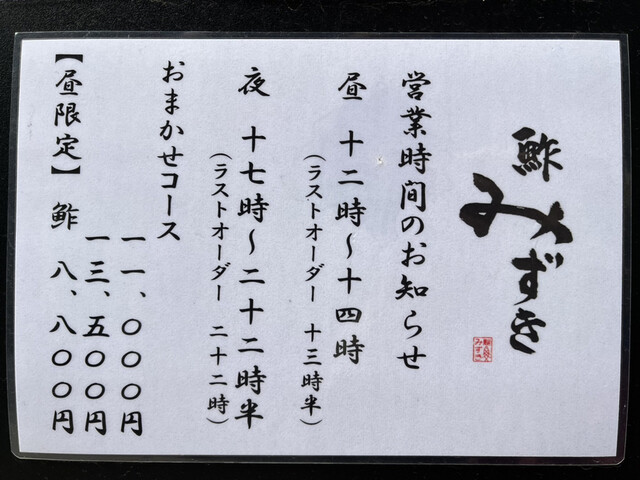 鮓 みずき
営業時間のお知らせ
昼 十二時〜十四時
（ラストオーダー 十三時半）
夜 十七時〜二十二時半
（ラストオーダー 二十二時）
おまかせコース
一一、〇〇〇円
一三、五〇〇円
【昼限定】 鮓 八、八〇〇円